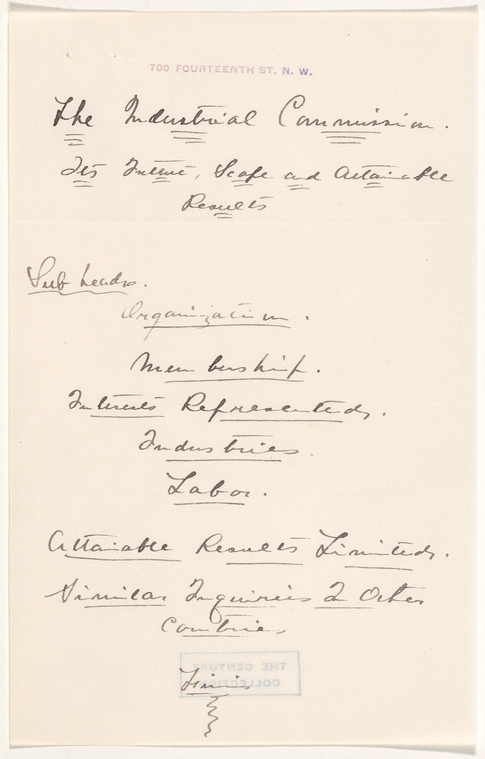 700 FOURTEENTH ST. N. W.
The Industrial Commission.
Its Intent, Scope and Attainable
Results
Sub heads.
Organization.
Membership.
Interests Represented.
Industries.
Labor.
Attainable Results Limited.
Similar Inquiries In Other
Countries
THE CENTURY
COLLECTION
Finis